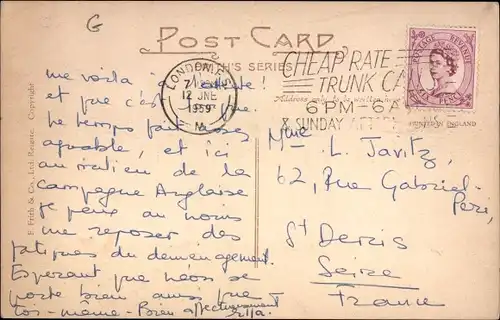 G
POST CARD
TH'S SERIES
LONDON E.S.
7
12 JNE
1959
CHEAP RATE
TRUNK CA
6 PM-6A
& SUNDAY AFTE
POSTAGE REVENUE
PRINTED IN ENGLAND
F. Frith & Co., Ltd. Reigate. Copyright
me voilà à l'
et que c'est
le temps fait
agréable, et ici
au milieu de la
campagne Anglaise
je peux au moins
me reposer des
fatigues du déménagement.
Esperant que Néos se
porte bien ainsi que
Toi-même - Bien affectueusement
Ella.
Mme L. Javitz,
62, Rue Gabriel-
Peri,
St Denis
Seine
France